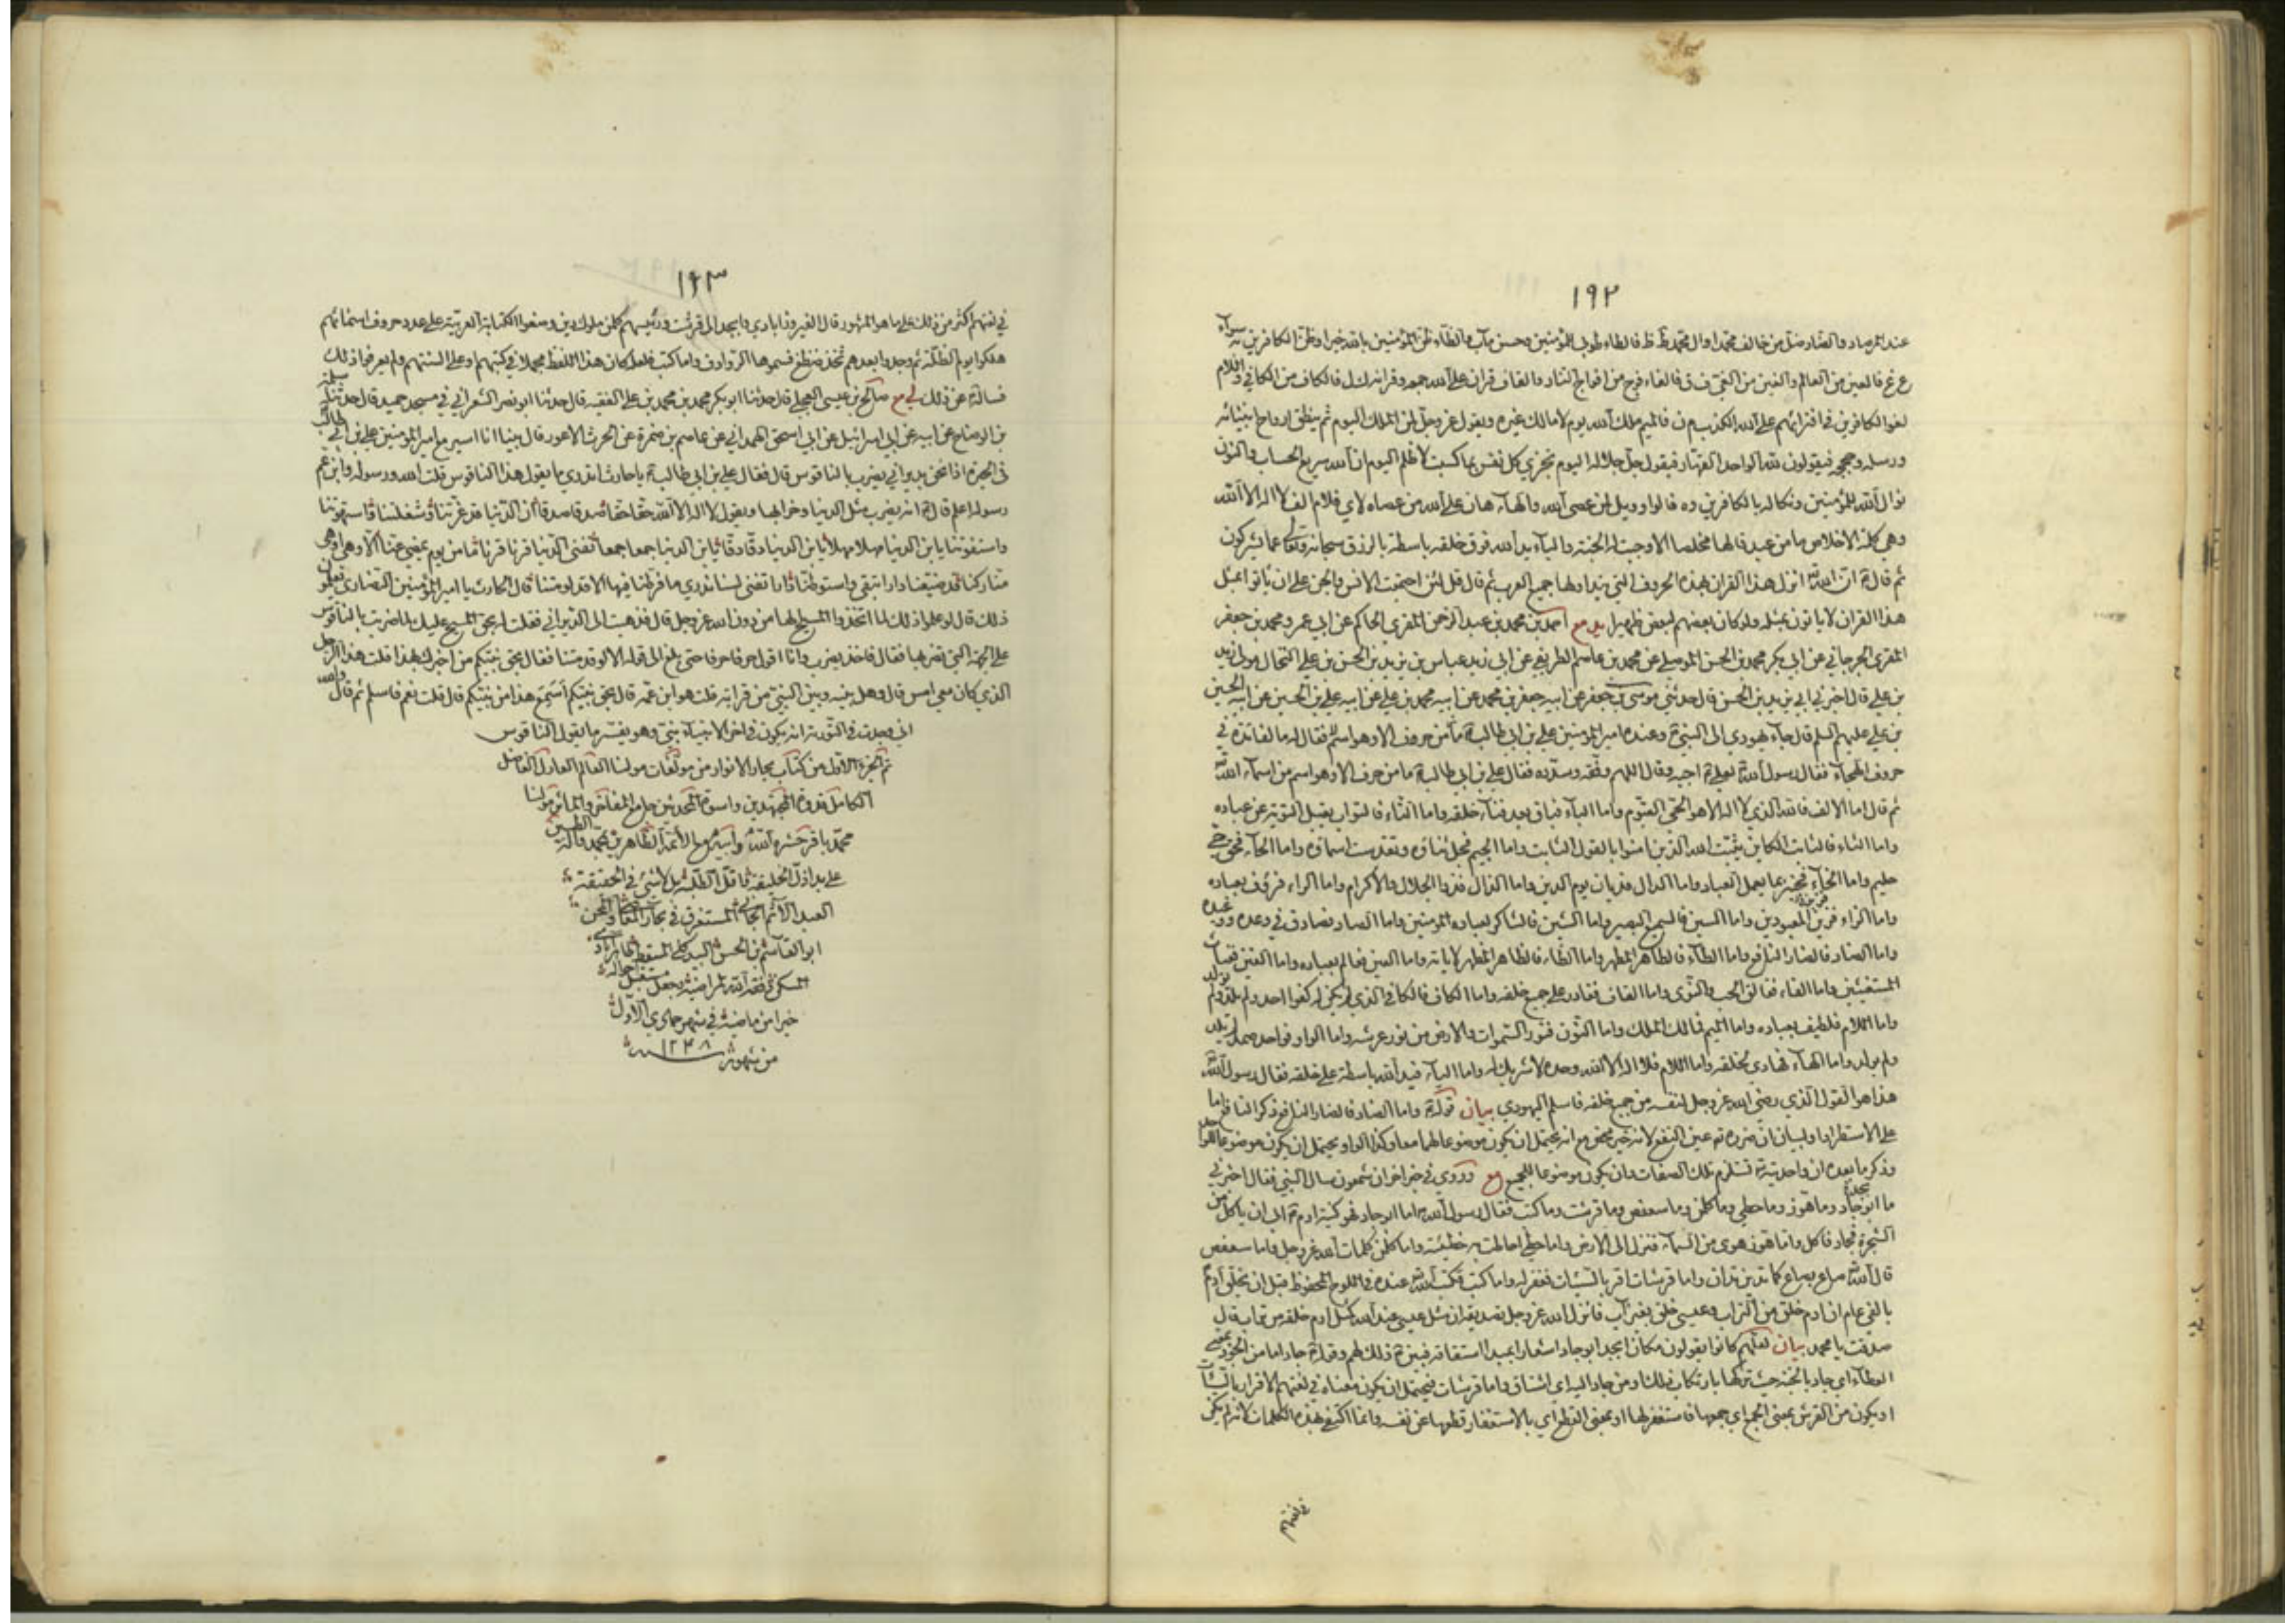 ١٩٢
عند المرصاد والضاد ضل من خالف محمدا وال محمد ط ظ فالطاء طوبى للمؤمنين وحسن مآب والظاء ظن المؤمنين بالله خيرا وظن الكافرين به سوءا
ع غ فالعين من العالم والغين من الغنى ف ق فالفاء فوج من افواج النار والقاف قران على الله جمعه وقرانه ك ل فالكاف من الكافي واللام
لغو الكافرين في افترائهم على الله الكذب م ن فالميم ملك الله يوم لا مالك غيره ويقول عز وجل لمن الملك اليوم ثم ينطق ارواح انبيائه
ورسله وحججه فيقولون لله الواحد القهار فيقول جل جلاله اليوم تجزى كل نفس بما كسبت لا ظلم اليوم ان الله سريع الحساب والنون
نوال الله للمؤمنين ونكاله بالكافرين وه فالواو ويل لمن عصى الله والهاء هان على الله من عصاه لاي فلام الف لا اله الا الله
وهي كلمة الاخلاص ما من عبد قالها مخلصا الا وجبت له الجنة والياء يد الله فوق خلقه باسطة بالرزق سبحانه وتعالى عما يشركون
ثم قال ان الله انزل هذا القران بهذه الحروف التي يتداولها جميع العرب ثم قال قل لئن اجتمعت الانس والجن على ان ياتوا بمثل
هذا القران لا ياتون بمثله ولو كان بعضهم لبعض ظهيرا يد مع احمد بن محمد بن عبد الرحمن المقري الحاكم عن ابي عمرو محمد بن جعفر
المقري الجرجاني عن ابي بكر محمد بن الحسن الموصلي عن محمد بن عاصم الطريفي عن ابي زيد عباس بن يزيد بن الحسن بن علي النخال مولى زيد
بن علي قال اخبرني ابي يزيد بن الحسن قال حدثني موسى بن جعفر عن ابيه جعفر بن محمد عن ابيه محمد بن علي عن ابيه علي بن الحسين عن ابيه الحسين
بن علي عليهم السلم قال جاء يهودي الى النبي وعنده امير المؤمنين علي بن ابي طالب فقال له ما الفائدة في
حروف الهجاء فقال رسول الله لعلي اجبه وقال اللهم وفقه وسدده فقال علي بن ابي طالب ما من حرف الا وهو اسم من اسماء الله
ثم قال اما الالف فالله الذي لا اله الا هو الحي القيوم واما الباء فباق بعد فناء خلقه واما التاء فالتواب يقبل التوبة عن عباده
واما الثاء فالثابت الكاين يثبت الله الذين امنوا بالقول الثابت واما الجيم فجل ثناؤه وتقدست اسماؤه واما الحاء فحق حي
حليم واما الخاء فخبير بما يعمل العباد واما الدال فديان يوم الدين واما الذال فذو الجلال والاكرام واما الراء فرؤف بعباده
واما الزاء فزين المعبودين واما السين فالسميع البصير واما الشين فالشاكر لعباده المؤمنين واما الصاد فصادق في وعده ووعيده
واما الضاد فالضار النافع واما الطاء فالطاهر المطهر واما الظاء فالظاهر المظهر لاياته واما العين فعالم بعباده واما الغين فغياث
المستغيثين واما الفاء ففالق الحب والنوى واما القاف فقادر على جميع خلقه واما الكاف فالكافي الذي لم يكن له كفوا احد ولم يلد ولم يولد
واما اللام فلطيف بعباده واما الميم فمالك الملك واما النون فنور السموات والارض من نور عرشه واما الواو فواحد صمد لم يلد
ولم يولد واما الهاء فهادي لخلقه واما اللام فلا اله الا الله وحده لا شريك له واما الياء فيد الله باسطة على خلقه فقال رسول الله
هذا هو القول الذي رضي الله عز وجل لنفسه من جميع خلقه فاسلم اليهودي بيان قوله واما الضاد فالضار النافع ذكر النافع اما
على الاستطراد او لبيان ان ضرره عين النفع لانه خير محض مع انه يحتمل ان يكون موضوعا لهما معا وكذا الواو يحتمل ان يكون موضوعا للواحد
وذكر ما بعده لان واحديته تستلزم تلك الصفات وان يكون موضوعا للجميع مع وروي في خبر اخر ان شمعون سال النبي فقال اخبرني
ما ابوجاد وما هوز وما حطي وما كلمن وما سعفص وما قرشت وما كتب فقال رسول الله اما ابوجاد فهو كنية ادم ابى ان ياكل من
الشجرة فجاد فاكل واما هوز هوى من السماء فنزل الى الارض واما حطي احاطت به خطيئته واما كلمن كلمات الله عز وجل واما سعفص
قال الله صاع بصاع كما تدين تدان واما قرشات اقر بالسيئات فغفر له واما كتب فكتب الله عنده في اللوح المحفوظ قبل ان يخلق ادم
بالفي عام ان ادم خلق من التراب وعيسى خلق بغير اب فانزل الله عز وجل تصديقه ان مثل عيسى عند الله كمثل ادم خلقه من تراب قال
صدقت يا محمد بيان لعلهم كانوا يقولون مكان ابجد ابوجاد اشعارا بمبدا اشتقاقه فبين ذلك لهم وقوله جاد اما من الجود بمعنى
العطاء اي جاد بالجنة حيث تركها بارتكاب ذلك او من جاد اليه اي اشتاق واما قرشات فيحتمل ان يكون معناه في لغتهم الاقرار بالسيئات
او يكون من القرش بمعنى الجمع اي جمعها فاستغفر لها او بمعنى القطع اي بالاستغفار قطعها عن نفسه وانما اكتفى بهذه الكلمات لانه لم يكن
في لغتهم
١٩٣
في لغتهم اكثر من ذلك على ما هو المشهور قال الفيروزابادي وابجد الى قرشت ورئيسهم كلمن ملوك مدين وضعوا الكتابة العربية على عدد حروف اسمائهم
هلكوا يوم الظلة ثم وجدوا بعدهم ثخذ ضظغ فسموها الروادف واما كتب فلعله كان هذا اللفظ مجملا في كتبهم او على السنتهم ولم يعرفوا ذلك
فساله عن ذلك لي مع صالح بن عيسى العجلي قال حدثنا ابو بكر محمد بن محمد بن علي الفقيه قال حدثنا ابو نصر الشعراني في مسجد حميد قال حدثنا سلمة
بن الوضاح عن ابيه عن ابي اسرائيل عن ابي اسحق الهمداني عن عاصم بن ضمرة عن الحرث الاعور قال بينا انا اسير مع امير المؤمنين علي بن ابي طالب
في الحيرة اذا نحن بديراني يضرب بالناقوس قال فقال علي بن ابي طالب يا حارث اتدري ما يقول هذا الناقوس قلت الله ورسوله وابن عم
رسوله اعلم قال انه يضرب مثل الدنيا وخرابها ويقول لا اله الا الله حقا حقا صدقا صدقا ان الدنيا قد غرتنا وشغلتنا واستهوتنا
واستغوتنا يا بن الدنيا مهلا مهلا يا بن الدنيا دقا دقا يا بن الدنيا جمعا جمعا تفنى الدنيا قرنا قرنا ما من يوم يمضي عنا الا وهى اوهى
منا ركنا قد ضيعنا دارا تبقى واستوطنا دارا تفنى لسنا ندري ما فرطنا فيها الا لو قد متنا قال الحارث يا امير المؤمنين النصارى يعلمون
ذلك قال لو علموا ذلك لما اتخذوا المسيح الها من دون الله عز وجل قال فذهبت الى الديراني فقلت له بحق المسيح عليك لما ضربت بالناقوس
على الجهة التي تضربها فقال فاخذ يضرب وانا اقول حرفا حرفا حتى بلغ الى قوله الا لو قد متنا فقال بحق نبيكم من اخبرك بهذا قلت هذا الرجل
الذي كان معي امس قال وهل بينه وبين النبي من قرابة قلت هو ابن عمه قال بحق نبيكم اسمع هذا من نبيكم قال قلت نعم فاسلم ثم قال والله
اني وجدت في التورية انه يكون في اخر الانبياء نبي وهو يفسر ما يقول الناقوس
تم الجزء الاول من كتاب بحار الانوار من مولفات مولنا العالم العادل الفاضل
الكامل قدوة المجتهدين واسوة المحدثين جامع المفاخر والماثر مولنا
محمد باقر حشره الله وابيه مع الأئمة الطاهرين محمد وآله الطيبين
على يد اذل الخليقة واقل الطلبة بل لا شيء في الحقيقة
العبد الآثم الجاني المستغرق في بحار المعاصي
ابو القاسم بن الحسن
وفقه الله لمراضيه وجعل مستقبل احواله
خيرا من ماضيه في شهر جمادى الاول
من شهور سنة ١٢٣٨